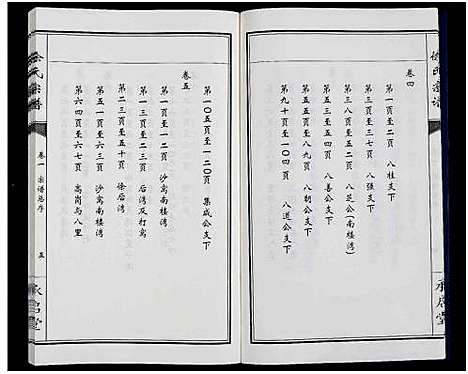 徐氏宗谱
承启堂
卷四
第一页至五二页 八柱支下
第二页至三七页 八强支下
第三八页至五二页 八芝公(南楼湾)
第五二页至八五页 八善公支下
第五九页至八九页 八朝公支下
第九十页至一〇四页 八道公支下
第一〇五页至一二〇页 集成公支下
卷五
第一页至一二页 沙窝南楼湾
第一三页至二三页 后湾及打窝
第二三页至五十页 徐后湾
第五一页至六三页 沙窝南楼湾
第六四页至六七页 高岗与八里
徐氏宗谱
卷一 宗谱总序
五
承启堂